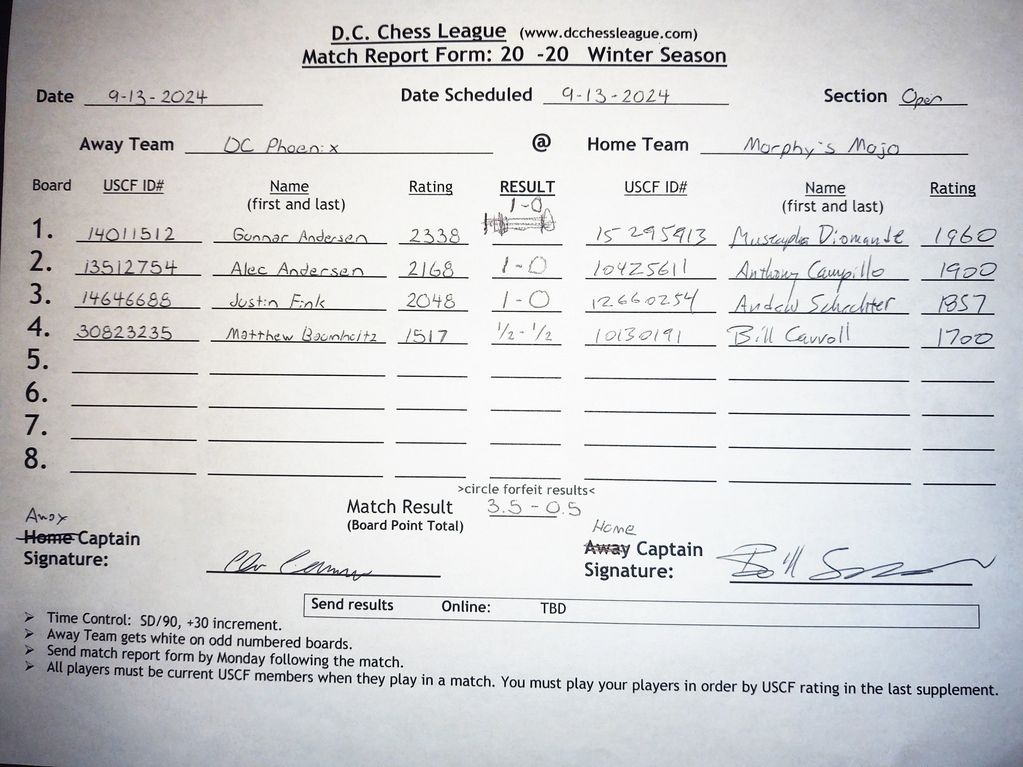 D.C. Chess League (www.dcchessleague.com)
Match Report Form: 20 -20 Winter Season
Date 9-13-2024 Date Scheduled 9-13-2024 Section Open
Away Team DC Phoenix @ Home Team Morphy's Mojo
Board USCF ID# Name Rating RESULT USCF ID# Name Rating
(first and last) (first and last)
1-0
1. 14011512 Gunnar Andersen 2338 15295913 Mustapha Diomande 1960
2. 13512754 Alec Andersen 2168 1-0 10425611 Anthony Campillo 1900
3. 14646688 Justin Fink 2048 1-0 12660254 Andrew Schechter 1857
4. 30823235 Matthew 1517 1/2-1/2 10130191 Bill Carroll 1700
5.
6.
7.
8.
>circle forfeit results<
Match Result 3.5-0.5
(Board Point Total)
Away Home
Home Captain Away Captain
Signature: Signature: Bill
Send results Online: TBD
➤ Time Control: SD/90, +30 increment.
➤ Away Team gets white on odd numbered boards.
➤ Send match report form by Monday following the match.
➤ All players must be current USCF members when they play in a match. You must play your players in order by USCF rating in the last supplement.